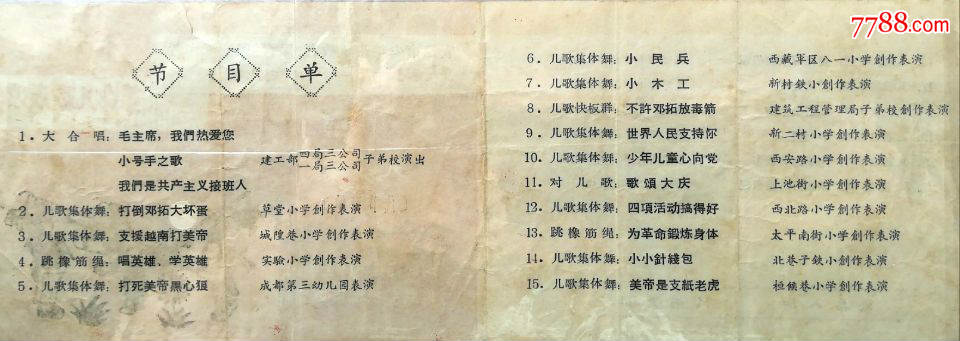 7788.com
节目单
1．大合唱：毛主席，我們热爱您
小号手之歌 建工部四局三公司一局三公司子弟校演出
我們是共产主义接班人
2．儿歌集体舞：打倒邓拓大坏蛋 草堂小学創作表演
3．儿歌集体舞：支援越南打美帝 城隍巷小学創作表演
4．跳橡筋绳：唱英雄、学英雄 实驗小学創作表演
5．儿歌集体舞：打死美帝黑心狼 成都第三幼儿园表演
6．儿歌集体舞：小民兵 西藏军区八一小学創作表演
7．儿歌集体舞：小木工 新村鉄小創作表演
8．儿歌快板群：不許邓拓放毒箭 建筑工程管理局子弟校創作表演
9．儿歌集体舞：世界人民支持你 新二村小学創作表演
10．儿歌集体舞：少年儿童心向党 西安路小学創作表演
11．对儿歌：歌頌大庆 上池街小学創作表演
12．儿歌集体舞：四項活动搞得好 西北路小学創作表演
13．跳橡筋绳：为革命鍛炼身体 太平南街小学創作表演
14．儿歌集体舞：小小針綫包 北巷子鉄小創作表演
15．儿歌集体舞：美帝是支紙老虎 桓候巷小学創作表演